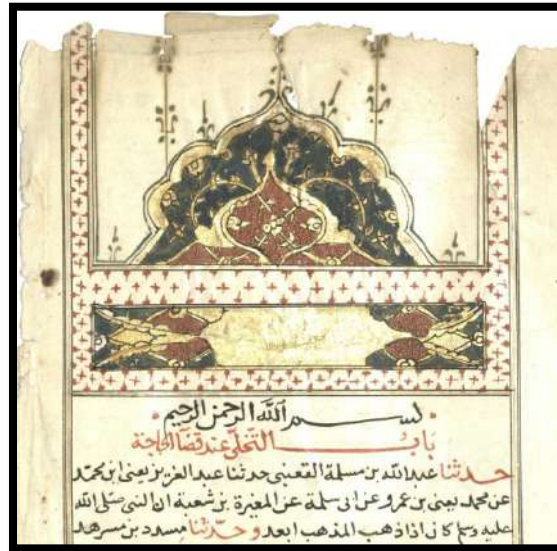 بسم الله الرحمن الرحيم
باب التخلي عند قضا الحاجة
حدثنا عبد الله بن مسلمة القعنبى حدثنا عبد العزيز يعنى ابن محمد
عن محمد يعنى بن عمرو عن ابى سلمة عن المغيرة بن شعبة ان النبى صلى الله
عليه وسلم كان اذا ذهب المذهب ابعد وحدثنا مسدد بن مسرهد